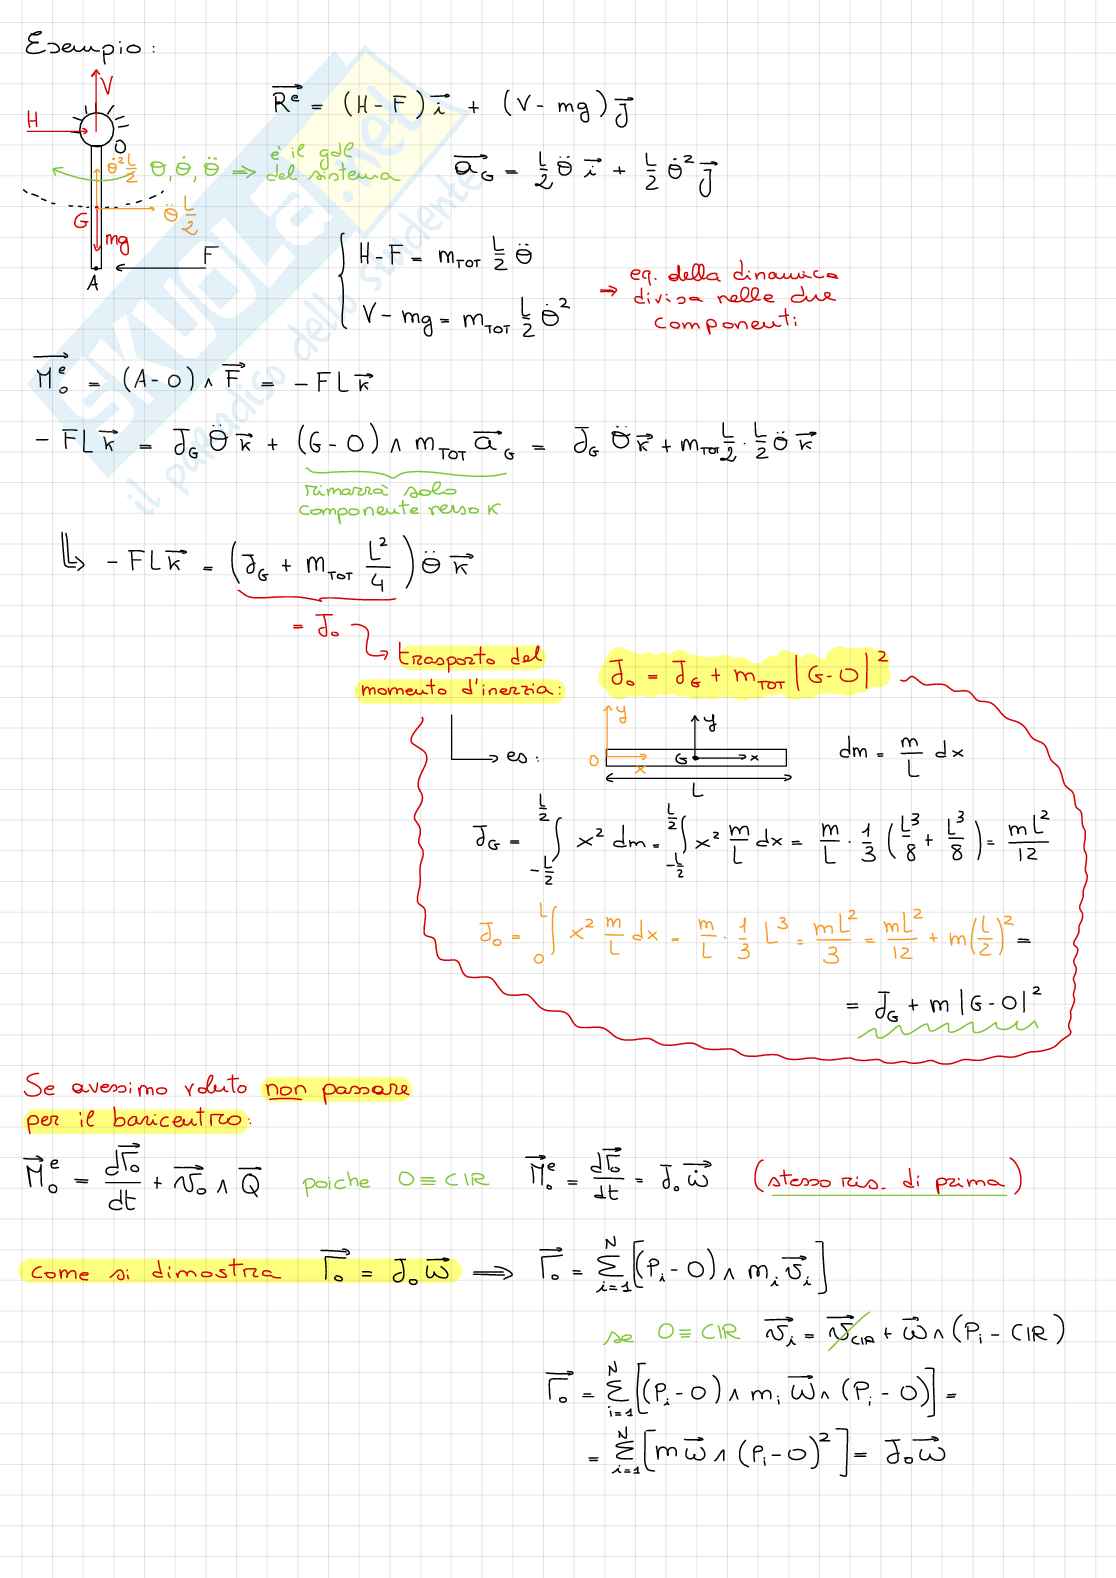 Esempio:
V
H
O
θ̇² L/2
θ, θ̇, θ̈ ⇒ è il gdl del sistema
G
θ̈ L/2
mg
F
A
R⃗ᵉ = (H-F) i⃗ + (V-mg) j⃗
a⃗_G = L/2 θ̈ i⃗ + L/2 θ̇² j⃗
{ H-F = m_TOT L/2 θ̈
V-mg = m_TOT L/2 θ̇²
→ eq. della dinamica
divisa nelle due
componenti
M⃗ₒᵉ = (A-O) ∧ F⃗ = -FL k⃗
-FL k⃗ = J_G θ̈ k⃗ + (G-O) ∧ m_TOT a⃗_G = J_G θ̈ k⃗ + m_TOT L/2 · L/2 θ̈ k⃗
rimarrà solo
componente verso k
⇓ -FL k⃗ = (J_G + m_TOT L²/4) θ̈ k⃗
= J₀
trasporto del
momento d'inerzia:
J₀ = J_G + m_TOT |G-O|²
→ es:
y
y
O
x
G
x
L
dm = m/L dx
J_G = ∫_{-L/2}^{L/2} x² dm = ∫_{-L/2}^{L/2} x² m/L dx = m/L · 1/3 (L³/8 + L³/8) = mL²/12
J₀ = ∫_0^L x² m/L dx = m/L · 1/3 L³ = mL²/3 = mL²/12 + m(L/2)² =
= J_G + m |G-O|²
Se avessimo voluto non passare
per il baricentro:
M⃗ₒᵉ = dΓ⃗ₒ/dt + v⃗ₒ ∧ Q⃗ poiche O ≡ CIR M⃗ₒᵉ = dΓ⃗ₒ/dt = J₀ ω̇⃗ (stesso ris. di prima)
come si dimostra Γ⃗ₒ = J₀ ω⃗ ⇒ Γ⃗ₒ = Σ_{i=1}^N [(Pᵢ-O) ∧ mᵢ v⃗ᵢ]
se O ≡ CIR v⃗ᵢ = v⃗_CIR + ω⃗ ∧ (Pᵢ - CIR)
Γ⃗ₒ = Σ_{i=1}^N [(Pᵢ-O) ∧ mᵢ ω⃗ ∧ (Pᵢ-O)] =
= Σ_{i=1}^N [m ω⃗ ∧ (Pᵢ-O)²] = J₀ ω⃗
SKUOLA.net
il paradiso dello studente